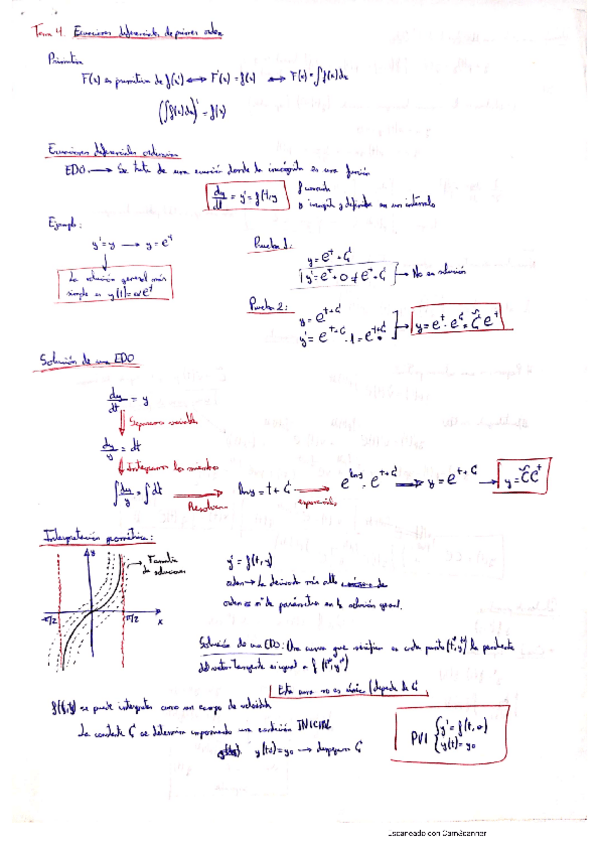 Tema 4. Ecuaciones diferenciales de primer orden
Primitiva
F(x) es primitiva de f(x) ⟷ F'(x) = f(x) ⟷ F(x) = ∫f(x)dx
(∫f(x)dx)' = f(x)
Ecuaciones diferenciales ordinarias
EDO ⟶ Se trata de una ecuación donde la incógnita es una función
dy/dt = y' = f(t,y
f conocida
incógnita y definida en un intervalo
Ejemplo:
y' = y ⟶ y = e^t
La solución general más
simple es y(t) = αe^t
Prueba 1:
y = e^t + C
y' = e^t + 0 ≠ e^t + C ⟶ No es solución
Prueba 2:
y = e^(t+C)
y' = e^(t+C) · 1 = e^(t+C)
y = e^t · e^C = Ĉ e^t
Solución de una EDO
dy/dt = y
Separamos variable
dy/y = dt
Integramos los miembros
∫dy/y = ∫dt ⟶ ln y = t + C ⟶ e^(ln y) = e^(t+C) ⟹ y = e^(t+C) ⟶ y = C̃C^t
Resolvemos
exponenciales
Interpretación geométrica:
y
Familia
de soluciones
-π/2
π/2
x
y' = f(t,y)
orden → La derivada más alta
orden = nº de parámetros en la solución general.
Solución de una EDO: Una curva que verifica en cada punto (t*,y*) la pendiente
del vector tangente es igual a f(t*,y*)
Esta curva no es única (depende de C
f(t,y) se puede interpretar como un campo de velocidad
La constante C se determina imponiendo una condición INICIAL
y(t0) = y0 ⟶ despejamos C
PVI { y' = f(t,
y(t) = y0
Escaneado con CamScanner